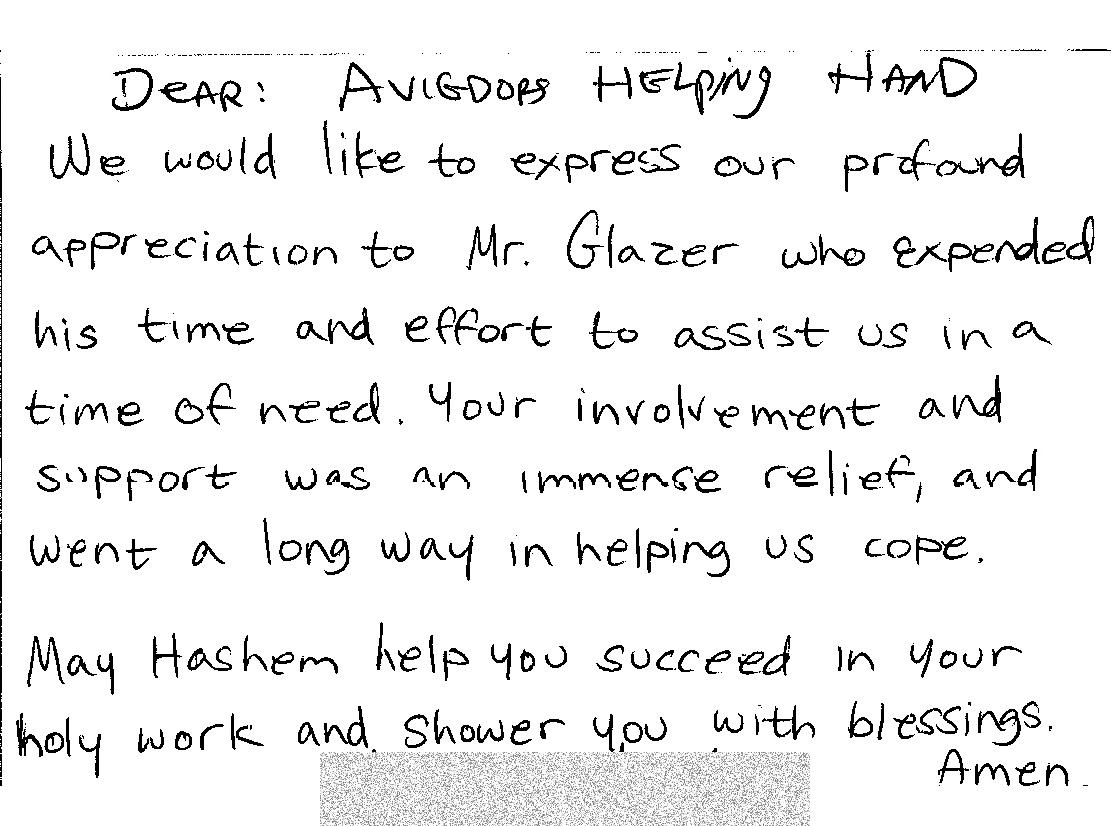 DEAR: AVIGDORS HELPING HAND
We would like to express our profound
appreciation to Mr. Glazer who expended
his time and effort to assist us in a
time of need. Your involvement and
support was an immense relief, and
went a long way in helping us cope.
May Hashem help you succeed in your
holy work and shower you with blessings.
Amen.